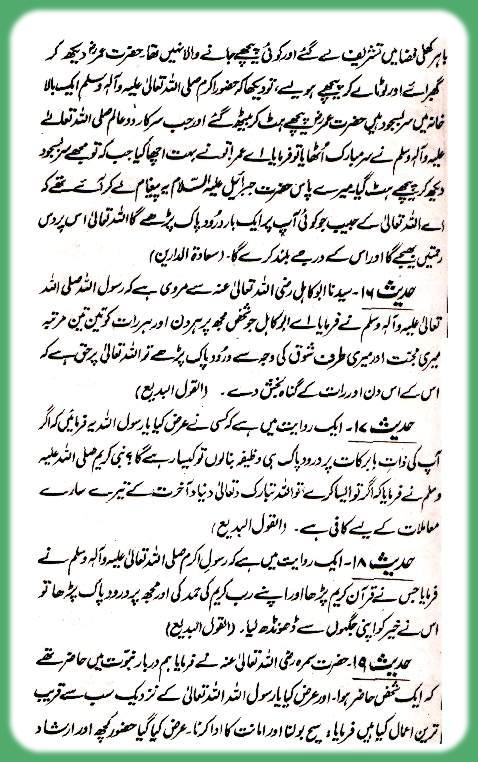 باہر کھلی فضا میں تشریف لے گئے اور کوئی پیچھے جانے والا نہیں تھا۔ حضرت عمرؓ دیکھ کر
گھبرائے اور لوٹا لے کر پیچھے ہو لیے، تو دیکھا کہ حضور اکرم صلی اللہ تعالیٰ علیہ وآلہٖ وسلم ایک بالا
خانہ میں سر بسجود ہیں حضرت عمرؓ پیچھے ہٹ کر بیٹھ گئے اور جب سرکار دو عالم صلی اللہ تعالےٰ
علیہ وآلہٖ وسلم نے سر مبارک اُٹھایا تو فرمایا اے عمر! تو نے بہت اچھا کیا جب کہ تو مجھے سر بسجود
دیکھ کر پیچھے ہٹ گیا۔ میرے پاس حضرت جبرائیل علیہ السّلام یہ پیغام لے کر آئے تھے کہ
اے اللہ تعالیٰ کے حبیب جو کوئی آپ پر ایک بار درُود پاک پڑھے گا اللہ تعالیٰ اس پر دس
رحمتیں بھیجے گا اور اس کے درجے بلند کرے گا۔ (سعادۃ الدارین)
حدیث ۱۶۔ سیدنا ابو کاہل رضی اللہ تعالیٰ عنہ سے مروی ہے کہ رسول اللہ صلی اللہ
تعالیٰ علیہ وآلہٖ وسلم نے فرمایا اے ابو کاہل جو شخص مجھ پر ہر دن اور ہر رات کو تین تین مرتبہ
میری محبّت اور میری طرف شوق کی وجہ سے درود پاک پڑھے تو اللہ تعالیٰ پر حق ہے کہ
اس کے اس دن اور رات کے گناہ بخش دے۔ (القول البدیع)
حدیث ۱۷۔ ایک روایت میں ہے کہ کسی نے عرض کیا یا رسول اللہ یہ فرمائیں کہ اگر
آپ کی ذاتِ بابرکات پر درود پاک ہی وظیفہ بنا لوں تو کیسا رہے گا؟ نبی کریم صلی اللہ علیہ
وسلم نے فرمایا کہ اگر تو ایسا کرے تو اللہ تبارک و تعالیٰ دنیا و آخرت کے تیرے سارے
معاملات کے لیے کافی ہے۔ (القول البدیع)
حدیث ۱۸۔ ایک روایت میں ہے کہ رسولِ اکرم صلی اللہ تعالیٰ علیہ وآلہٖ وسلم نے
فرمایا جس نے قرآن کریم پڑھا اور اپنے رب کریم کی حمد کی اور مجھ پر درود پاک پڑھا تو
اس نے خیر کو اپنی جگہوں سے ڈھونڈھ لیا۔ (القول البدیع)
حدیث ۱۹۔ حضرت سمرہ رضی اللہ تعالیٰ عنہ نے فرمایا ہم دربارِ نبوّت میں حاضر تھے
کہ ایک شخص حاضر ہوا۔ اور عرض کیا یا رسول اللہ اللہ تعالیٰ کے نزدیک سب سے قریب
ترین اعمال کیا ہیں فرمایا: سچ بولنا اور امانت کا ادا کرنا۔ عرض کیا گیا حضور کچھ اور ارشاد